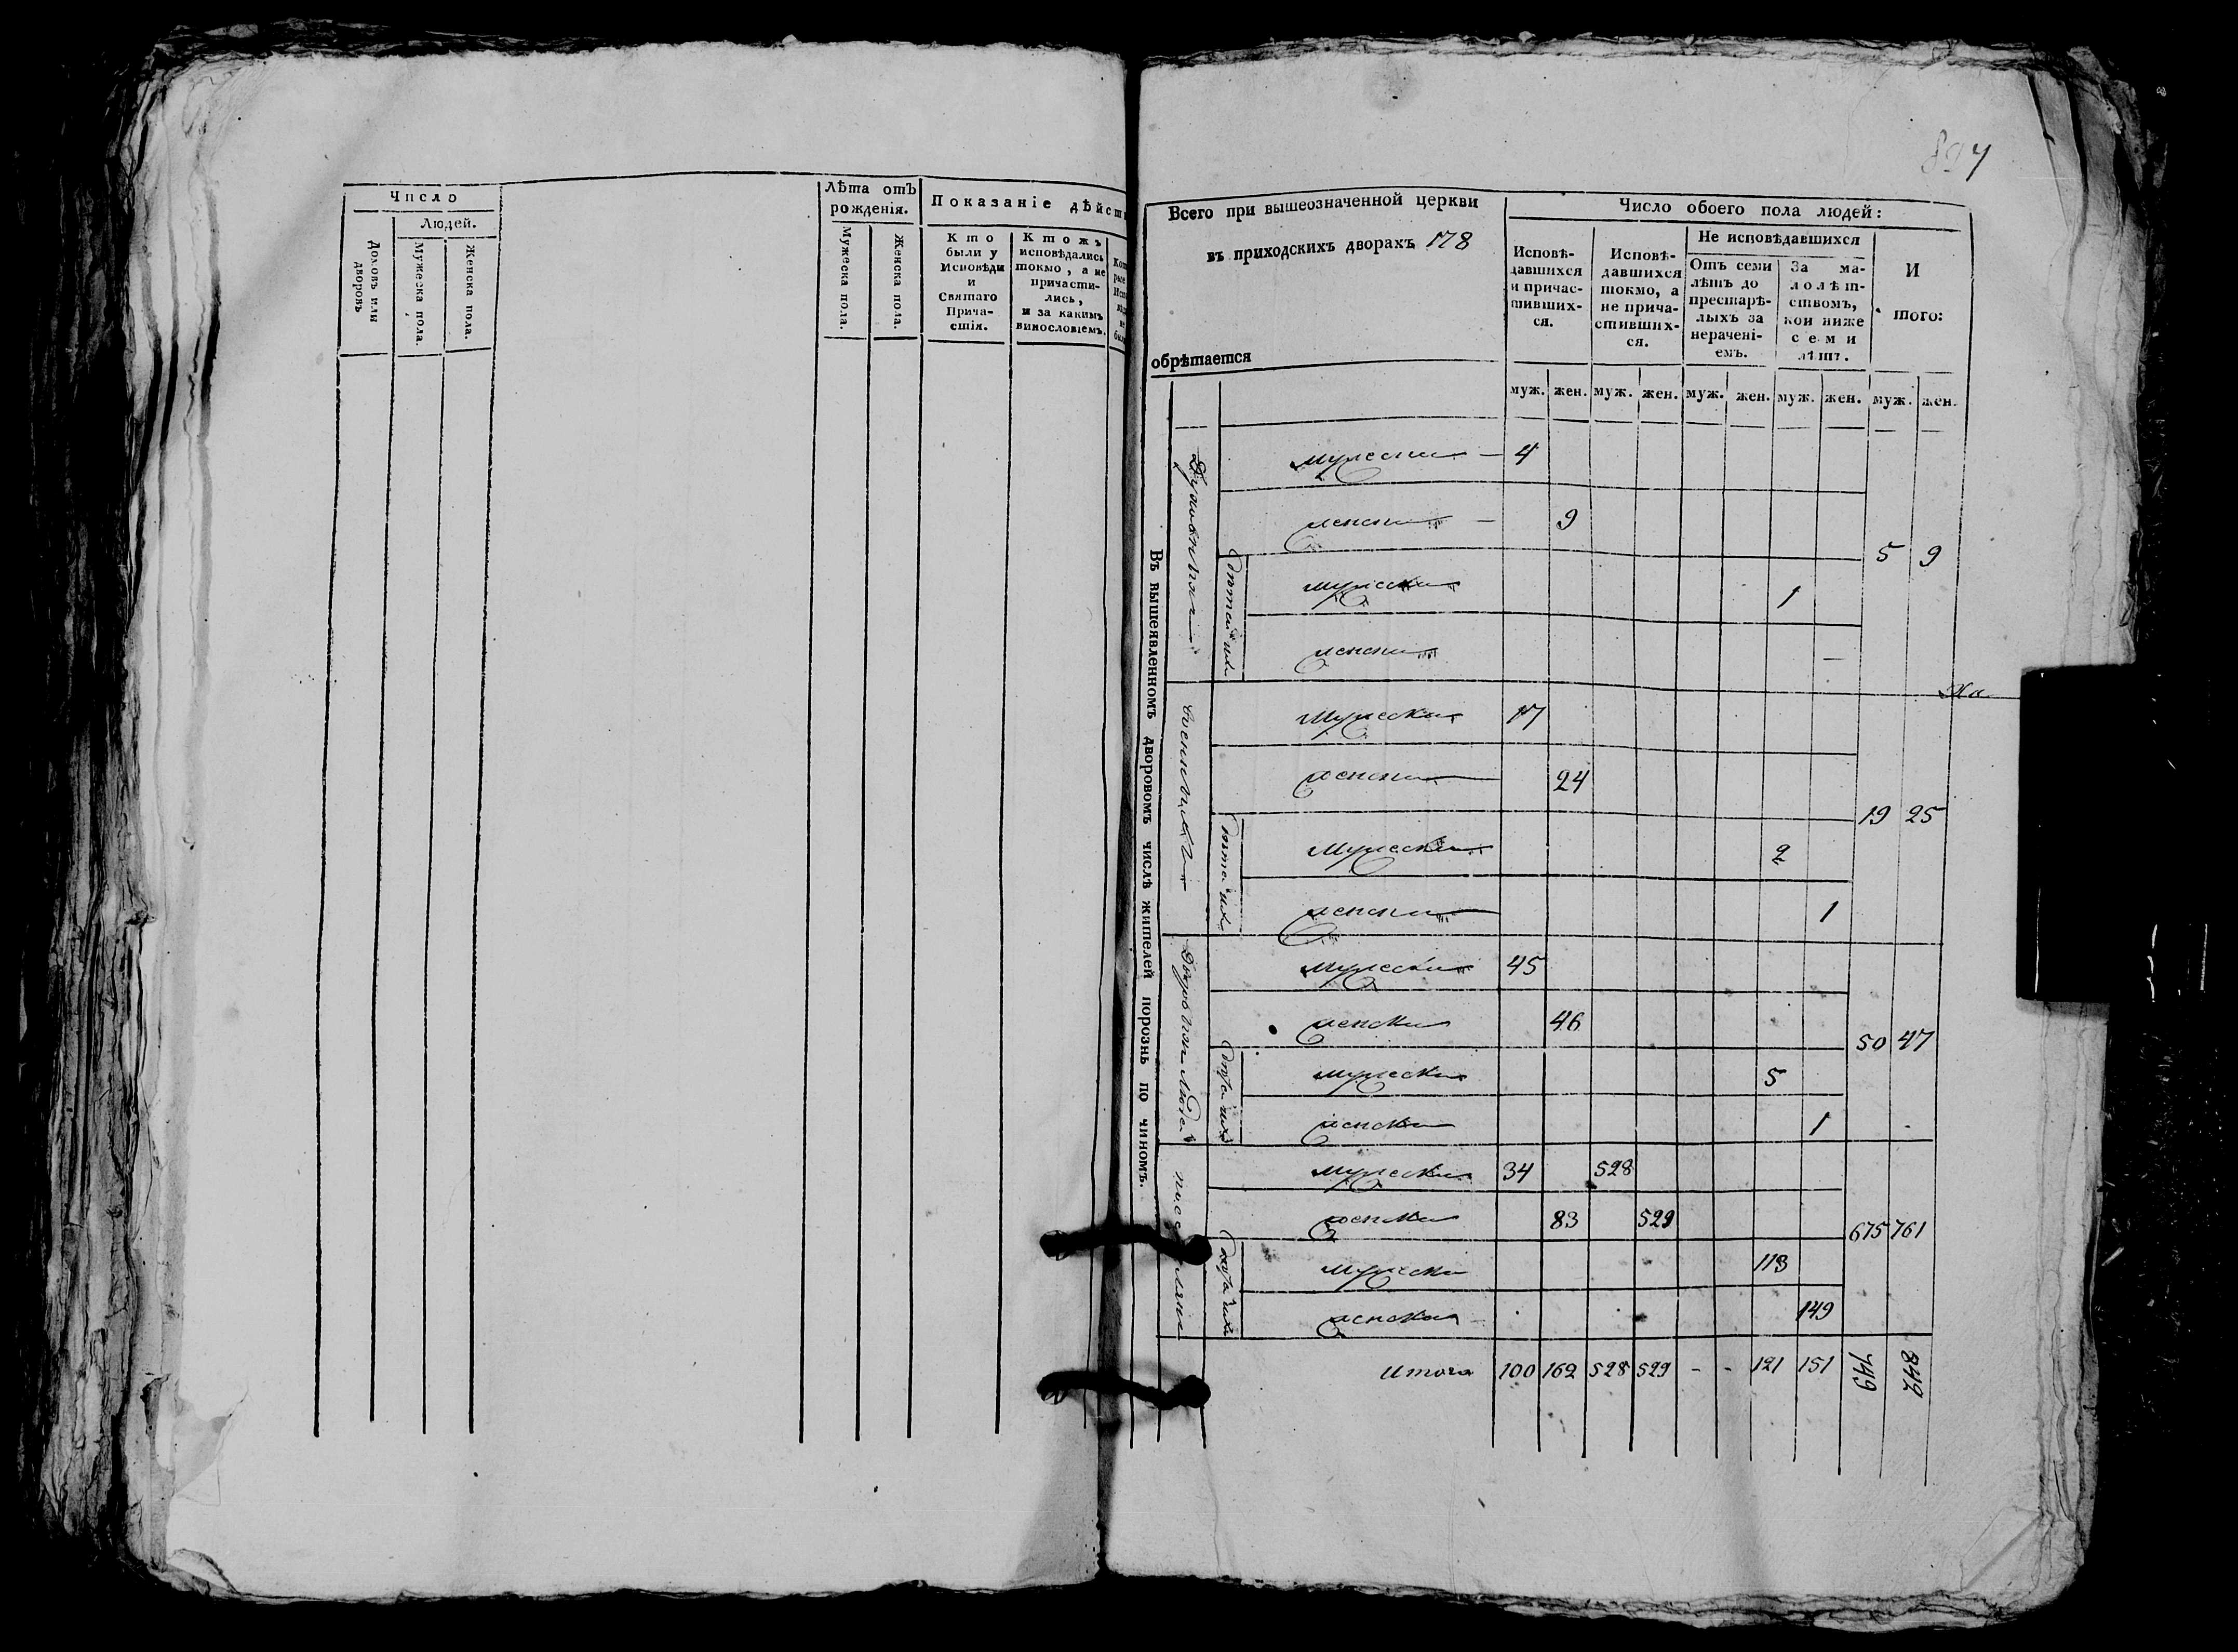 Число
Людей.
Домовъ или дворовъ
Мужеска пола.
Женска пола.
Лѣта отъ рожденія.
Мужеска пола.
Женска пола.
Показаніе дѣйст
Кто
были у
Исповѣди
и
Святаго
Прича-
стія.
Ктожъ
исповѣдались
токмо, а не
причасти-
лись,
и за какимъ
винословіемъ.
Всего при вышеозначенной церкви
въ приходскихъ дворахъ 178
обрѣтается
Число обоего пола людей:
Исповѣ-
давшихся
и причас-
тивших-
ся.
Исповѣ-
давшихся
токмо, а
не прича-
стивших-
ся.
Не исповѣдавшихся
Отъ семи
лѣтъ до
престарѣ-
лыхъ за
нерачені-
емъ.
За ма-
лолѣт-
ствомъ,
кои ниже
семи
лѣтъ.
И
того:
муж. жен. муж. жен. муж. жен. муж. жен. муж. жен.
Въ вышеявленномъ дворовомъ числѣ жителей порознь по чиномъ.
мужеска 4
женска 9
5 9
мужеска 1
женска —
мужеска 17
женска 24
19 25
мужеска 2
женска 1
мужеска 45
женска 46
50 47
мужеска 5
женска 1
мужеска 34 528
женска 83 529
675 761
мужеска 113
женска 149
Итого 100 162 528 529 - - 121 151 749 842